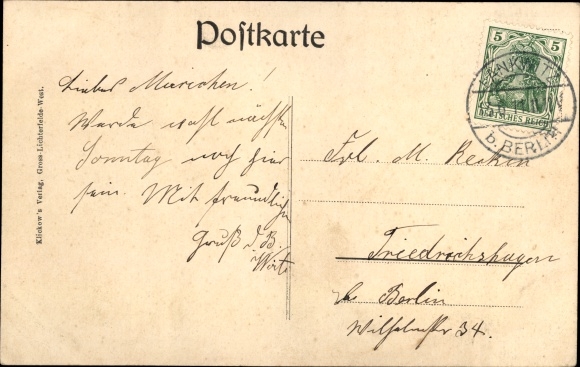 Postkarte
5 5
DEUTSCHES REICH
b. BERLIN
Klickow's Verlag, Gross-Lichterfelde-West.
Liebes Mariechen!
Werde wohl nächsten
Sonntag noch hier
sein. Mit freundlichen
Gruß
Frl. M.
Friedrichshagen
b. Berlin
Wilhelmstr 34.